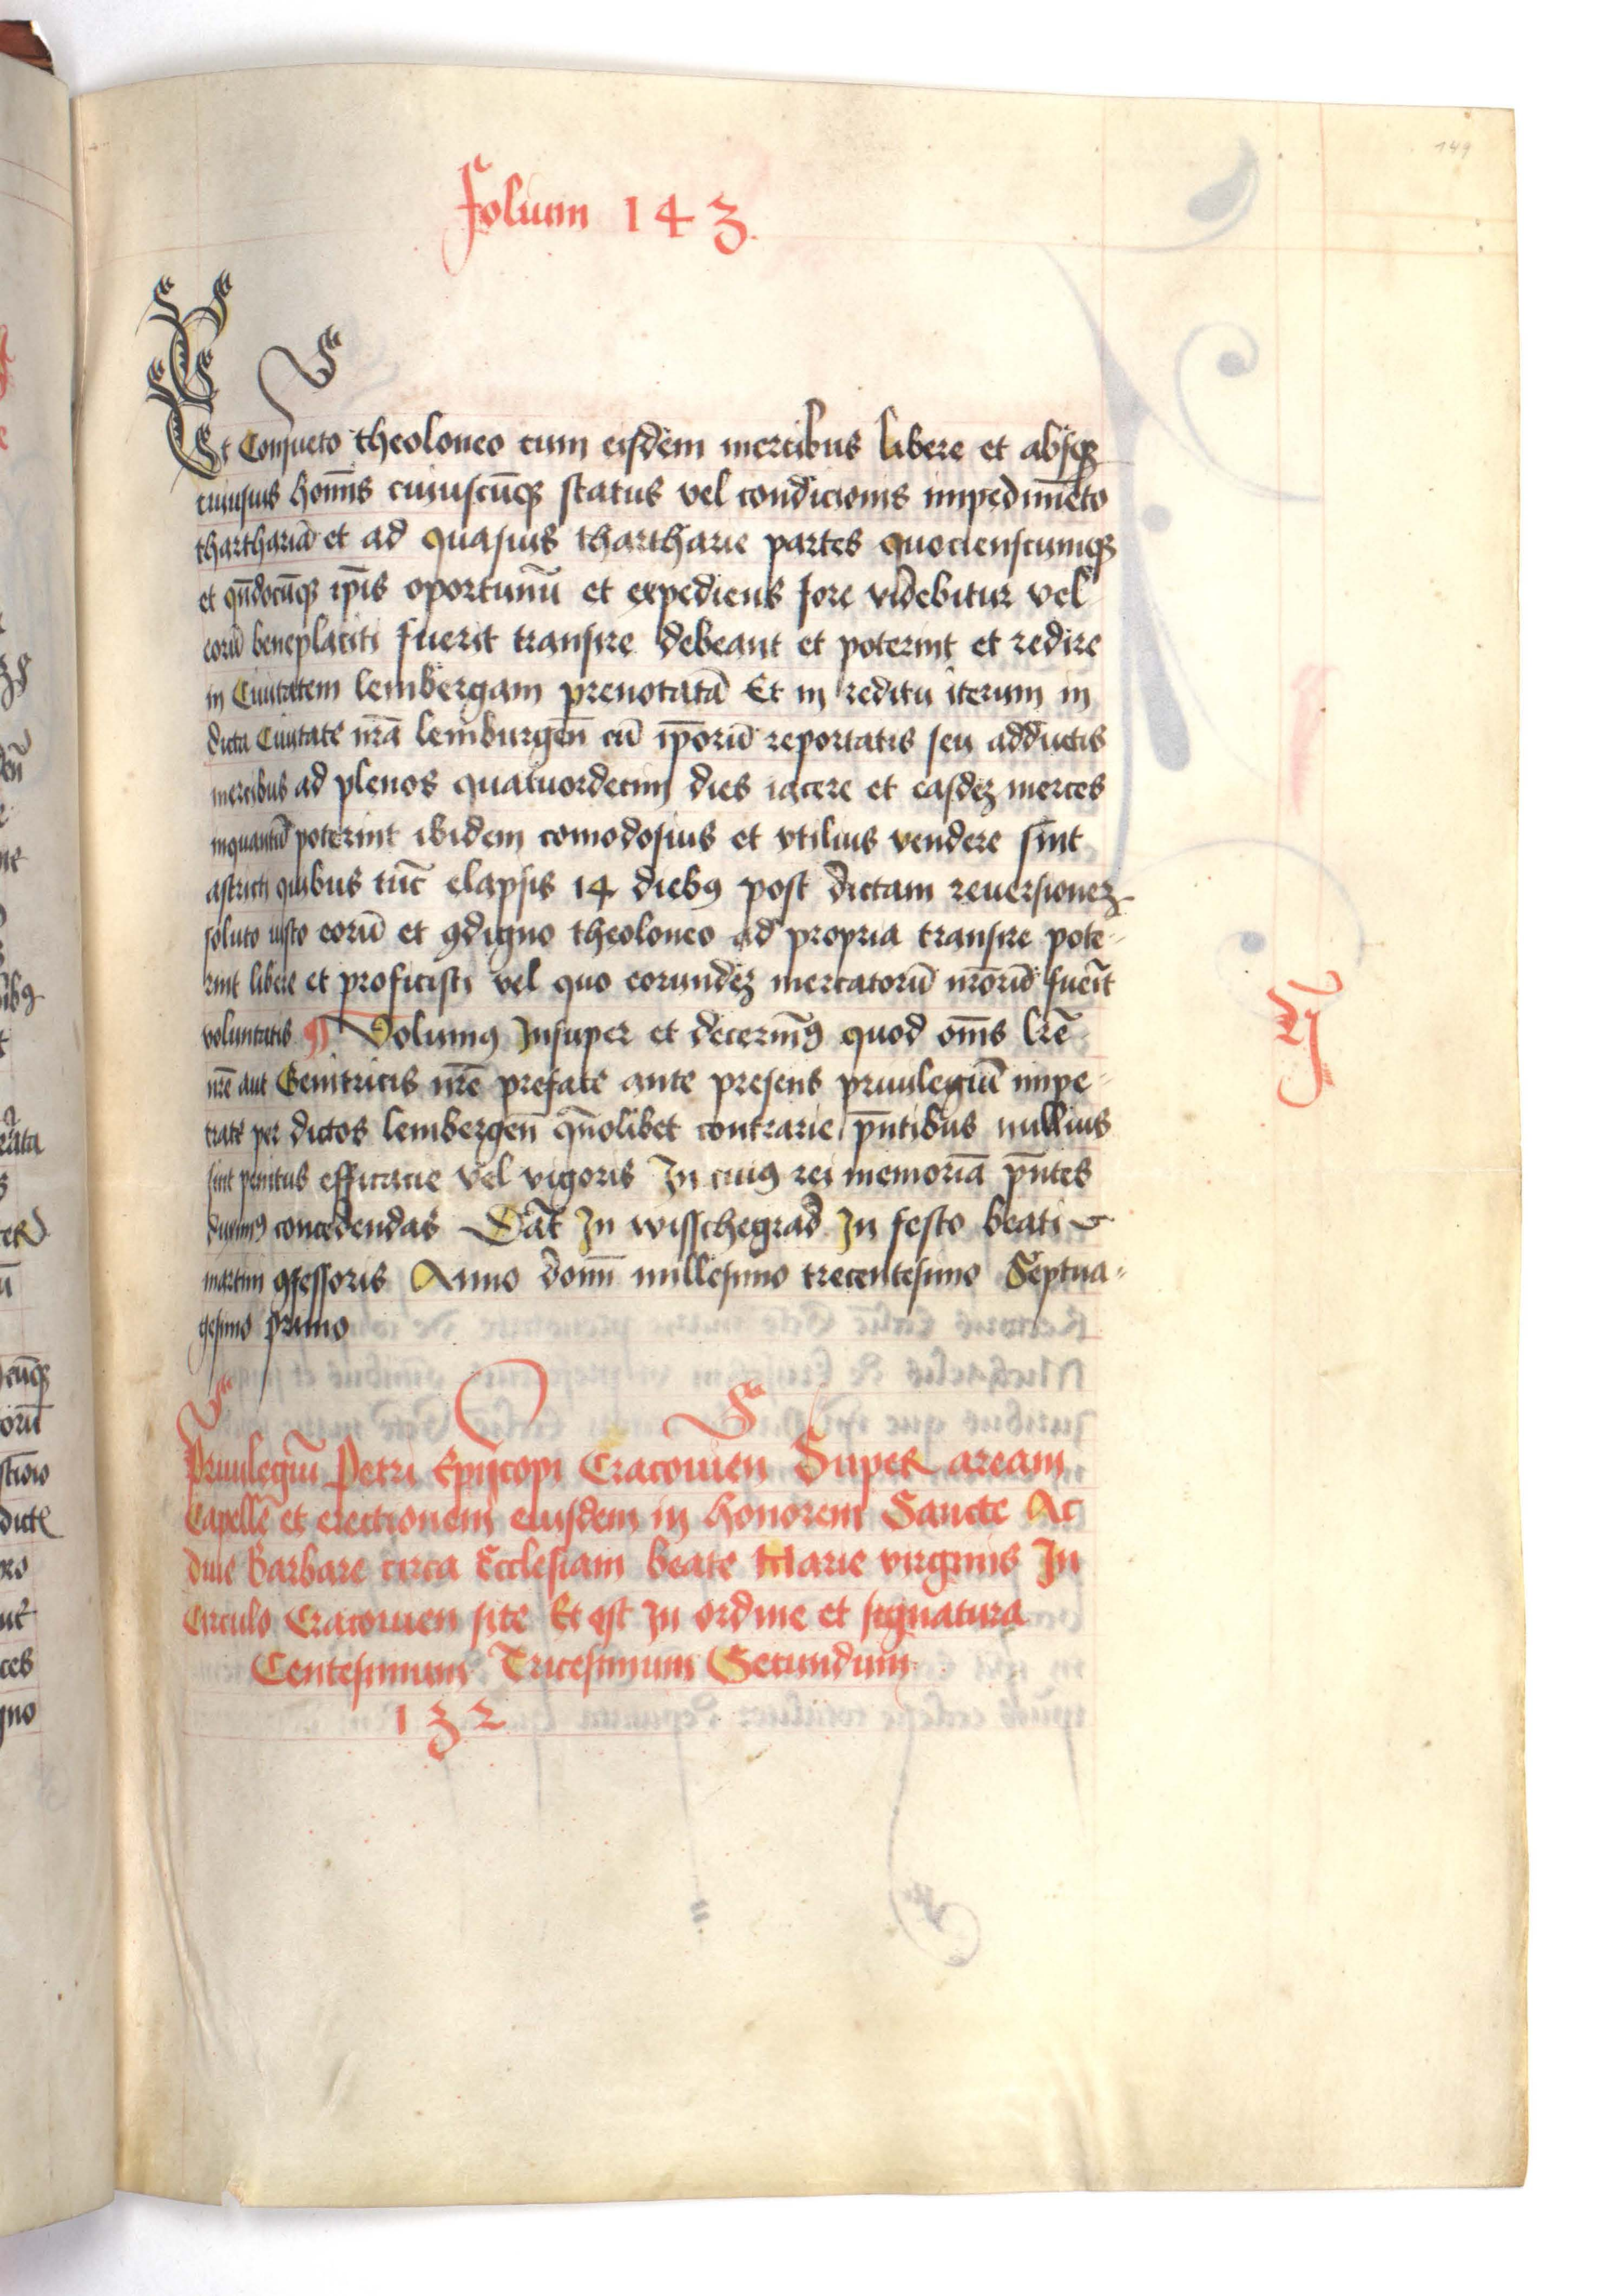 149
Folium 143.
Et Consueto theoloneo cum eisdem mercibus libere et absq̄
cuiusuis homīs cuiuscūq̄ status vel condicionis impedimēto
tharthariā et ad quasuis thartharie partes quocienscumq̄
et qn̄docūq̄ ip̄is oportunū et expediens fore videbitur vel
eorū beneplaciti fuerit transire debeant et poterint et redire
in Ciuitatem lembergam prenotatā Et in reditu iterum in
dicta Ciuitate nr̄a lemburgen̄ cū ip̄orū reportatis seu adductis
mercibus ad plenos quatuordecim dies iacere et easdez merces
inquantū poterint ibidem comodosius et vtilius vendere sint
astricti quibus tūc elapsis 14 dieb9 post dictam reuersionez
soluto iusto eorū et 9digno theoloneo ad propria transire pote-
rint libere et proficisci vel quo eorundez mercatorū nr̄orū fuerīt
voluntatis ¶ Volum9 Insuper et decernim9 quod om̄s lr̄e
nr̄e aut Genitricis nr̄e prefate ante presens priuilegiū impe-
trate per dictos lembergen̄ qn̄olibet contrarie p̄ntibus nullius
sint penitus efficacie vel vigoris In cui9 rei memoriā p̄ntes
duxim9 concedendas Dat̄ In wisschegrad In festo beati
martini 9fessoris Anno domī millesimo trecentesimo Septua-
gesimo primo
Priuilegiū Petri Episcopi Cracouien Super aream
Capellē et erectionem eiusdem in honorem Sancte Ac
diue Barbare circa Ecclesiam beate Marie virginis In
Circulo Cracouien site Et est In ordine et signatura
Centesimum Tricesimum Secundum
132